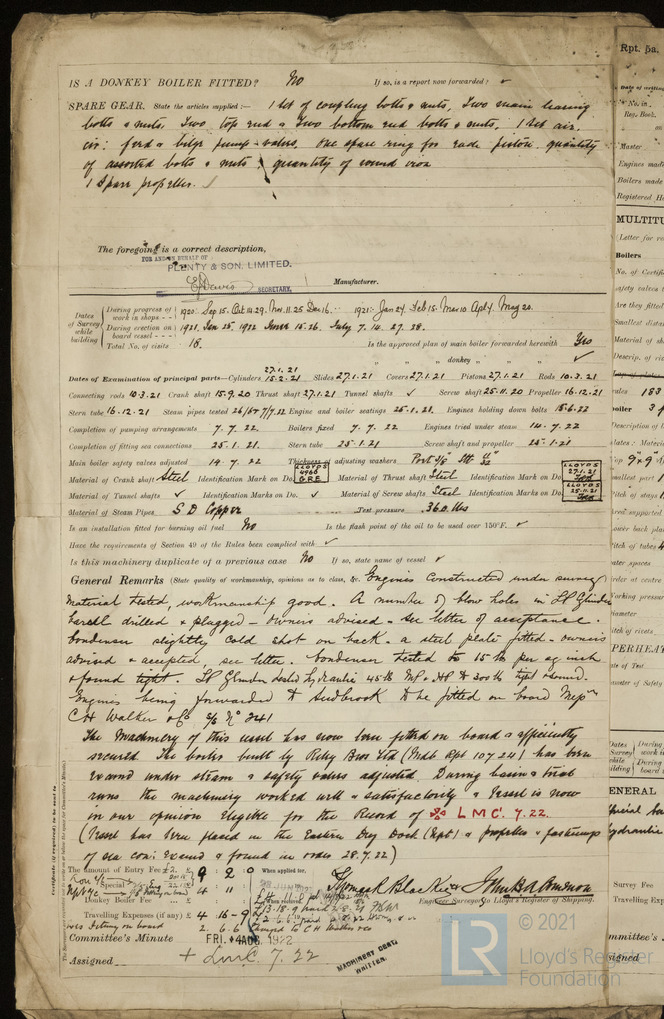 IS A DONKEY BOILER FITTED? No If so, is a report now forwarded? ✓
SPARE GEAR. State the articles supplied:— 1 Set of coupling bolts & nuts, Two main bearing
bolts & nuts, Two top end & Two bottom end bolts & nuts, 1 set air,
cir: feed & bilge pump valves, one spare ring for each piston, quantity
of assorted bolts & nuts, quantity of round iron
1 Spare propeller.
The foregoing is a correct description,
FOR AND ON BEHALF OF
PLENTY & SON, LIMITED.
Davis SECRETARY. Manufacturer.
Dates of Survey while building
During progress of work in shops - - 1920: Sep 15. Oct 14. 29. Nov. 11. 25 Dec 16. 1921: Jan 24. Feb 15. Mar 10 Apl 4. May 20.
During erection on board vessel - - - 1921. Jan 25. 1922 June 15. 26. July 7. 14. 27. 28.
Total No. of visits 18. Is the approved plan of main boiler forwarded herewith Yes
" " " donkey " " " ✓
Dates of Examination of principal parts—Cylinders 27.1.21 15.2.21 Slides 27.1.21 Covers 27.1.21 Pistons 27.1.21 Rods 10.3.21
Connecting rods 10.3.21 Crank shaft 15.9.20 Thrust shaft 27.1.21 Tunnel shafts ✓ Screw shaft 25.11.20 Propeller 16.12.21
Stern tube 16.12.21 Steam pipes tested 26/6 & 7/7/22 Engine and boiler seatings 25.1.21. Engines holding down bolts 15.6.22
Completion of pumping arrangements 7.7.22. Boilers fixed 7.7.22 Engines tried under steam 14.7.22
Completion of fitting sea connections 25.1.21. Stern tube 25.1.21 Screw shaft and propeller 25.1.21
Main boiler safety valves adjusted 14.7.22 Thickness of adjusting washers Port 3/8" Stb 11/32
Material of Crank shaft Steel Identification Mark on Do. LLOYDS 4966 G.R.E Material of Thrust shaft Steel Identification Mark on Do. LLOYDS 27.1.21
Material of Tunnel shafts ✓ Identification Marks on Do. ✓ Material of Screw shafts Steel Identification Marks on Do. LLOYDS 25.11.21
Material of Steam Pipes S D Copper Test pressure 360 lbs
Is an installation fitted for burning oil fuel No Is the flash point of the oil to be used over 150°F. ✓
Have the requirements of Section 49 of the Rules been complied with ✓
Is this machinery duplicate of a previous case No If so, state name of vessel ✓
General Remarks (State quality of workmanship, opinions as to class, &c. Engines constructed under survey
material tested, workmanship good. A number of blow holes in LP Cylinder
barrel drilled & plugged — owners advised — see letter of acceptance.
Condenser slightly cold shot on back — a steel plate fitted — owners
advised & accepted, see letter. Condenser tested to 15 lbs per sq inch
& found tight. LP Cylinder tested hydraulic 45 lb MP & HP to 300 lb tight & sound.
Engines being forwarded to Sudbrook to be fitted on board Messrs
C H Walker & Co s/s No 241
The Machinery of this vessel has now been fitted on board & efficiently
secured. The boiler built by Riley Bros Ltd (Mdb. Rpt 10724) has been
examd under steam & safety valves adjusted. During basin & trial
runs the machinery worked well & satisfactorily & vessel is now
in our opinion eligible for the Record of L M C. 7.22.
(Vessel has been placed in the Eastern Dry Dock (Npt) & propeller & fastenings
of sea con: examd & found in order 28.7.22)
Certificate (if required) to be sent to
The amount of Entry Fee £2. £ 9. 2. 0 When applied for,
Special
Npt 4/c £ 4. 11
Donkey Boiler Fee ... £ When received,
Travelling Expenses (if any) £ 4. 16 - 9
2. 6. 6
Engineer Surveyor to Lloyd's Register of Shipping.
Committee's Minute FRI. 4 AUG. 1922
Assigned + LMC. 7.22
MACHINERY CERT. WRITTEN.
Rpt. 5a.
No. in
Reg. Book.
Master
Engines mad
Boilers made
Registered H
MULTITU
(Letter for re
Boilers
No. of Certifi
safety valves t
Are they fitted
Smallest dista
Material of sh
Descrip. of ri
© 2021
Lloyd's Register
Foundation
LR